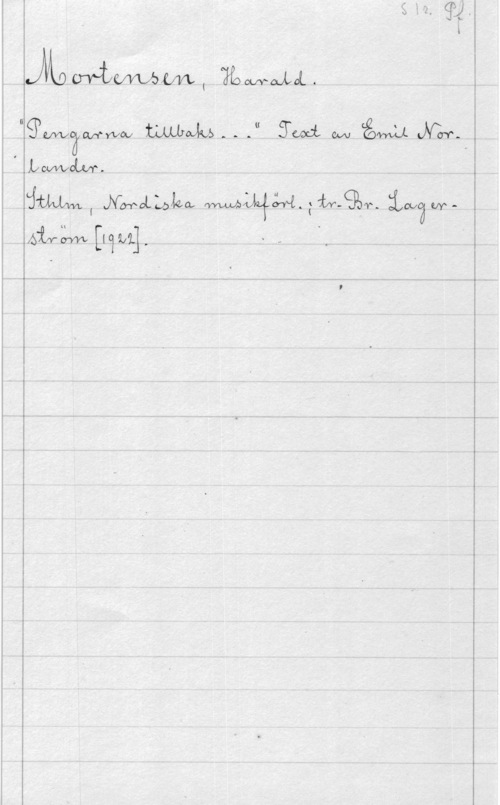 S 12. Pf.
Mortensen, Harald.
"Pengarna tillbaks..." Text av Emil Nor-
lander.
Sthlm, Nordiska musikförl.; tr. Br. Lager-
ström [1922].